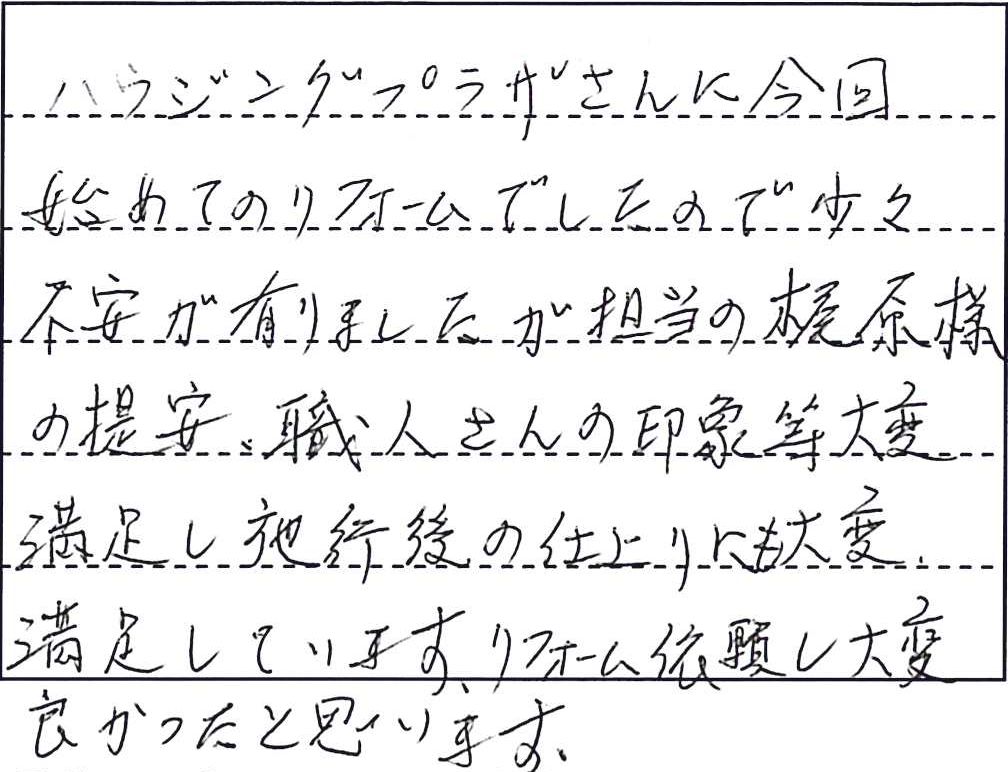 ハウジングプラザさんに今回
始めてのリフォームでしたので少々
不安が有りましたが担当の梶原様
の提安、職人さんの印象等大変
満足し施行後の仕上りにも大変、
満足しています、リフォーム依頼し大変
良かったと思います、